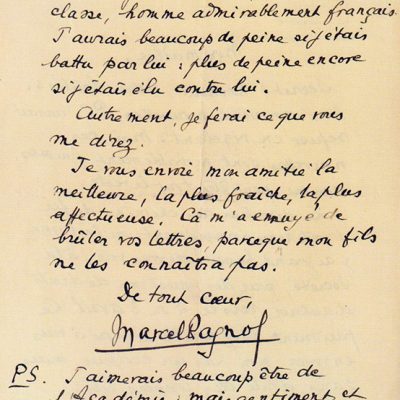 classe, homme admirablement français.
J'aurais beaucoup de peine si j'étais
battu par lui : plus de peine encore
si j'étais élu contre lui.
Autrement, je ferai ce que vous
me direz.
Je vous envoie mon amitié la
meilleure, la plus fraîche, la plus
affectueuse. Ça m'a ennuyé de
brûler vos lettres, parceque mon fils
ne les connaîtra pas.
De tout cœur,
Marcel Pagnol
PS. J'aimerais beaucoup être de
l'Académie : mais gentiment et